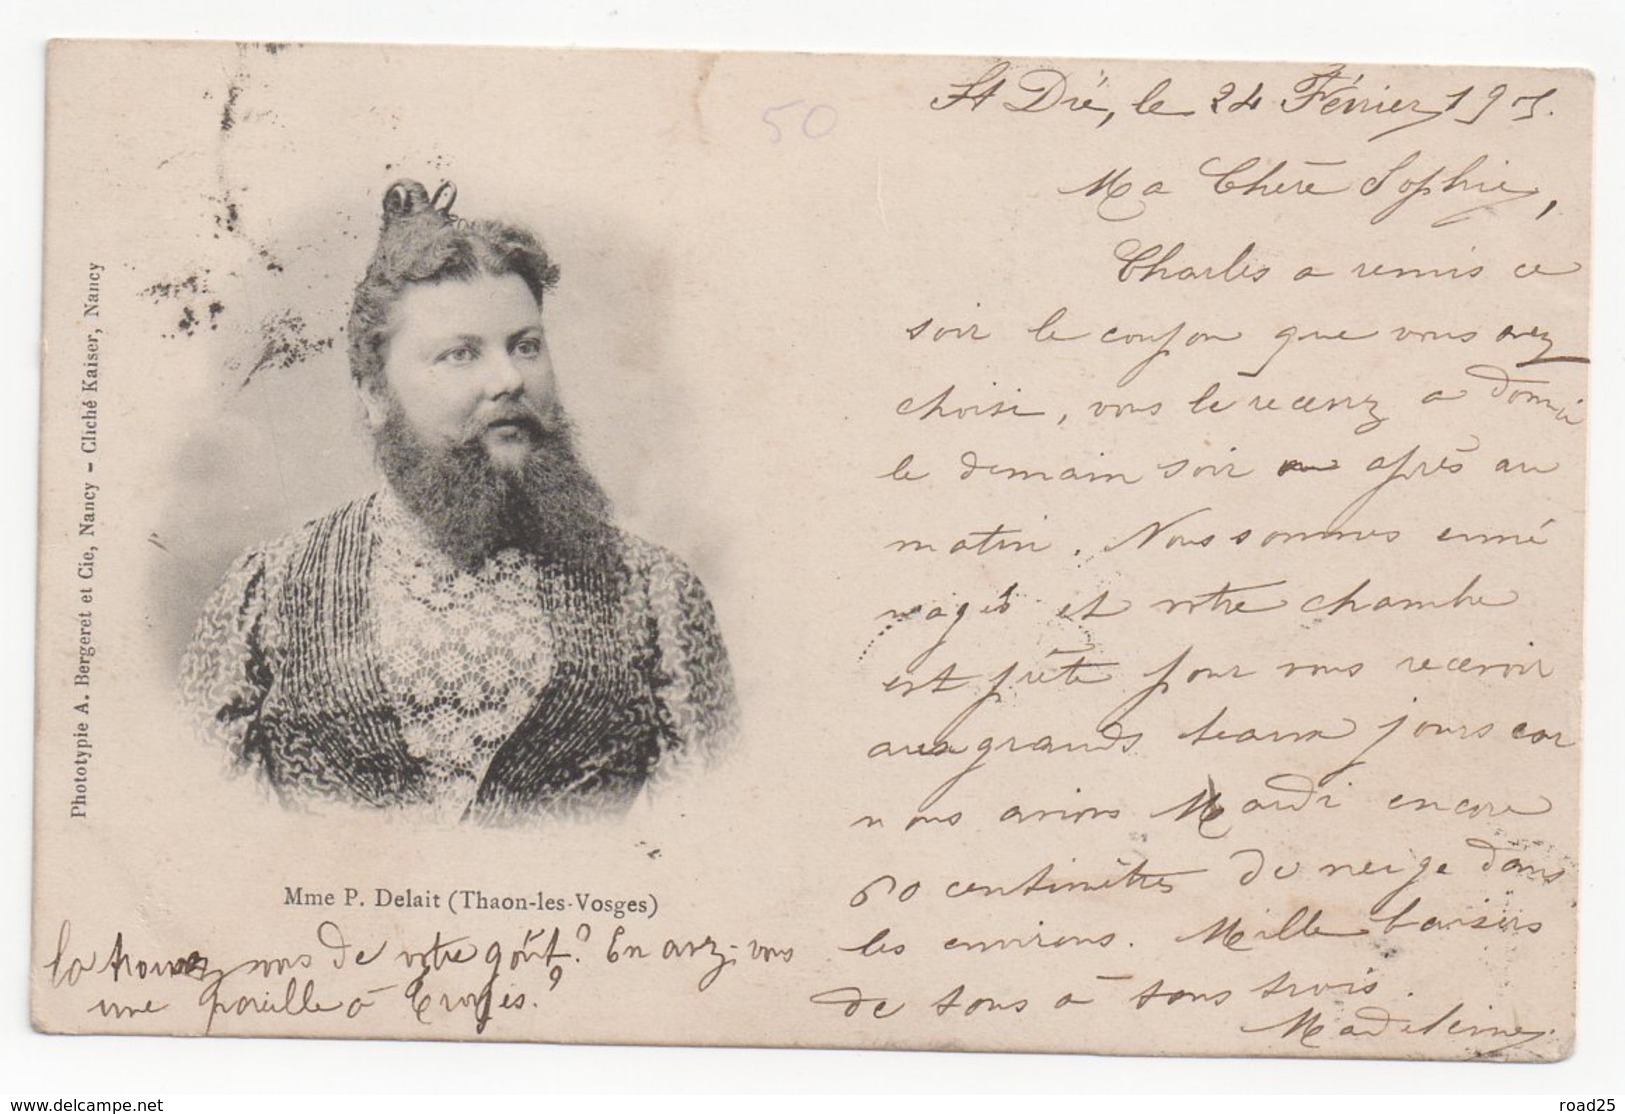 50
St Dié, le 24 Février 190
Ma Chère Sophie,
Charles a remis ce
soir le coupon que vous avez
choisi, vous le recevrez a domici
le demain soir ou après au
matin. Nous sommes emmé
nagés et votre chambre
est prête pour vous recevoir
aux grands beaux jours car
nous avions Mardi encore
60 centimètres de neige dans
les environs. Mille baisers
de tous à tous trois.
Madeleine.
Phototypie A. Bergeret et Cie, Nancy - Cliché Kaiser, Nancy
Mme P. Delait (Thaon-les-Vosges)
la trouvez vous de votre goût? En avez-vous
une pareille à Troyes?
www.delcampe.net
road25